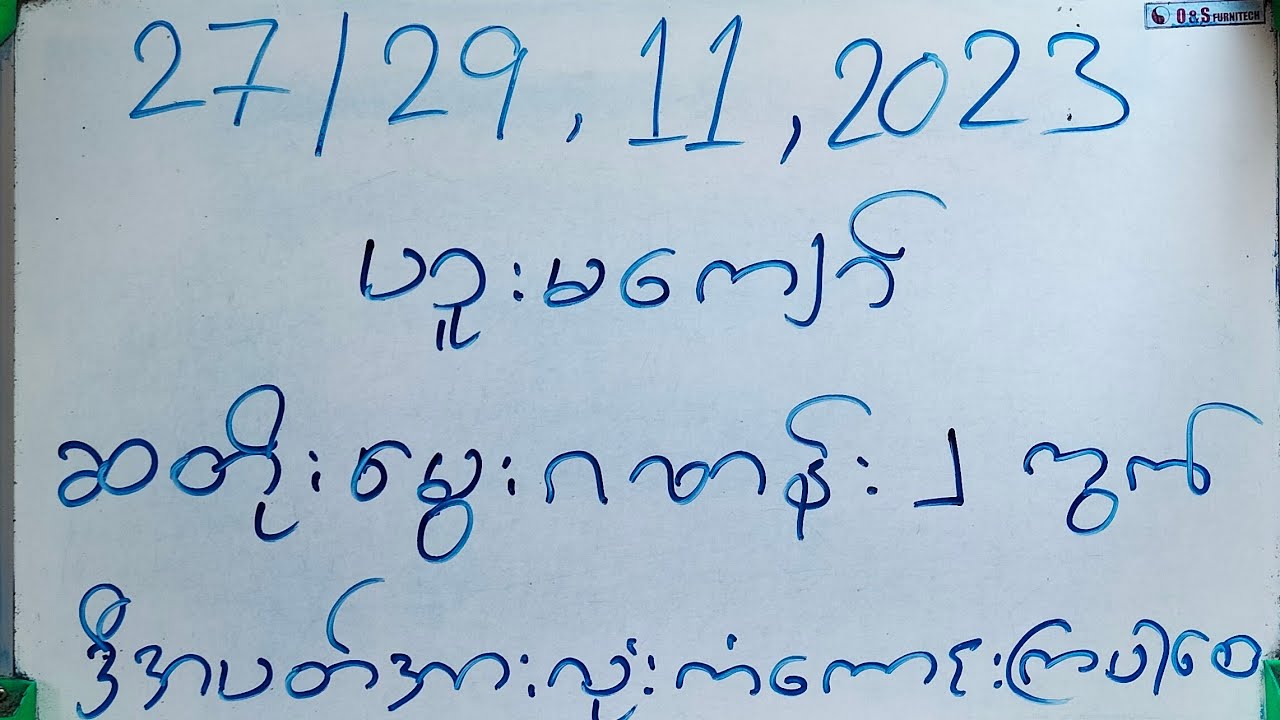 O & S FURNITECH
27/29, 11, 2023
ပဒူးမကျော်
ဆတိုးမွေးဂဏာန်း ၂ ကွက်
ဒီအပတ်အားလုံးကံကောင်းကြပါစေ